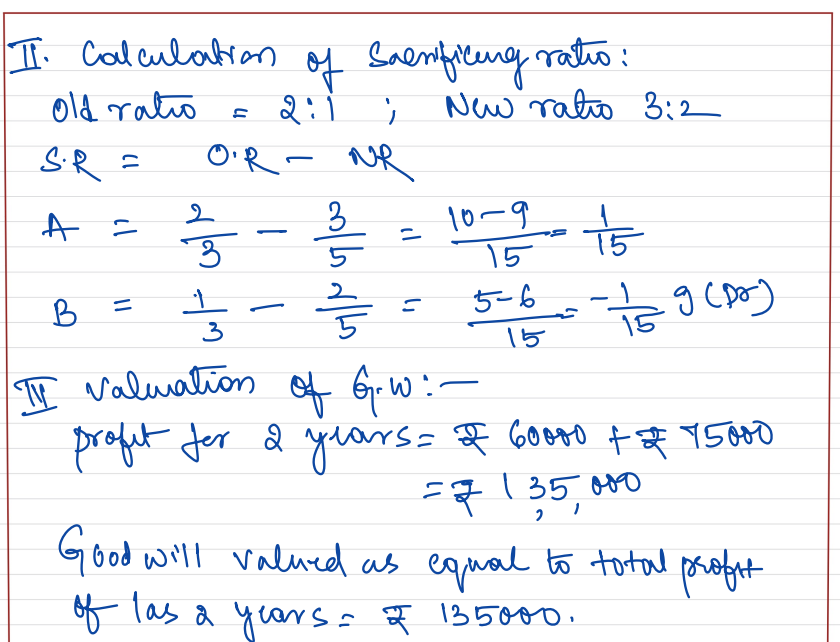 II. Calculation of Sacrificing ratio:
Old ratio = 2:1 ; New ratio 3:2
S.R = O.R - NR
A = 2/3 - 3/5 = 10-9/15 = 1/15
B = 1/3 - 2/5 = 5-6/15 = -1/15 g (Dr)
IV Valuation of G.W:-
profit for 2 years = ₹ 60000 + ₹ 75000
= ₹ 1,35,000
Goodwill valued as equal to total profit
of las 2 years = ₹ 135000.